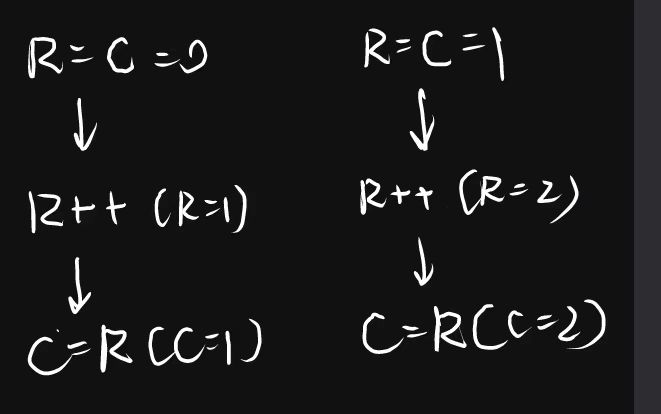 R=C=0
↓
R++ (R=1)
↓
C=R (C=1)
R=C=1
↓
R++ (R=2)
↓
C=R (C=2)